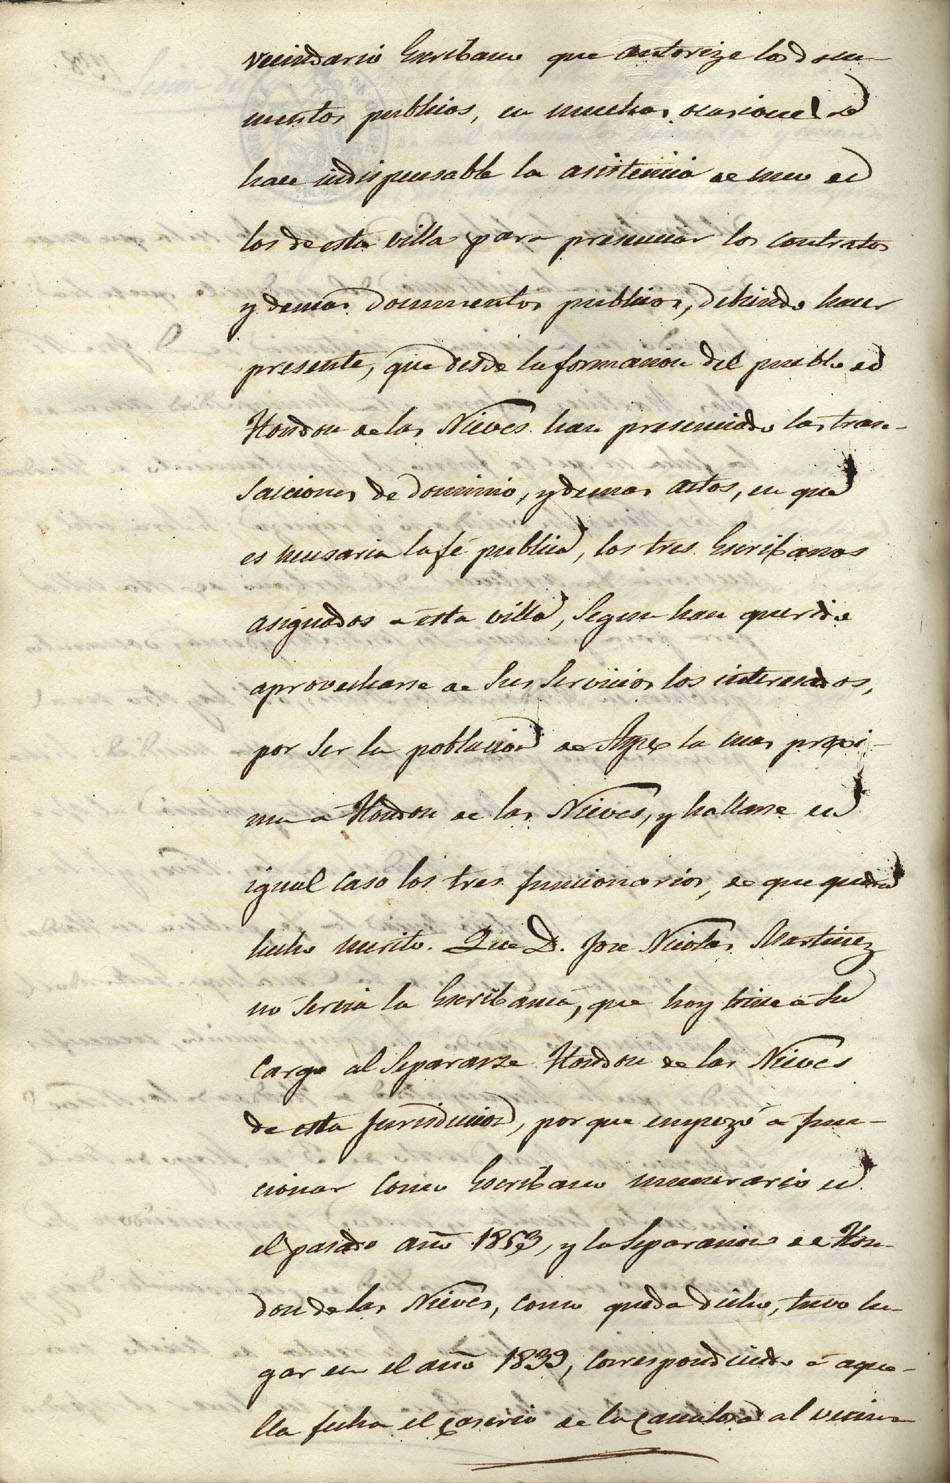 vecindario Escribano que autorize los docu-
mentos publicos, en muchas ocasiones se
hace indispensable la asistencia de uno de
los de esta villa para presenciar los contratos
y demas documentos publicos, debiendo hacer
presente, que desde la formacion del pueblo de
Hondon de las Nieves han presenciado las tran-
saciones de dominio, y demas actos, en que
es nesesaria la fé publica, los tres Escribanos
asignados a ésta villa, segun han querido
aprovecharse de sus servicios los interesados,
por ser la poblacion de Aspe la mas proxi-
ma a Hondon de las Nieves, y hallarse en
igual caso los tres funcionarios, de que queda
hecho merito. Que D. Jose Nicolas Martinez
no servia la Escribania, que hoy tiene a su
cargo al separarse Hondon de las Nieves
de esta Jurisdiccion, por que empezó a fun-
cionar como Escribano numerario en
el pasado año 1853, y la separacion de Hon-
don de las Nieves, como queda dicho, tuvo lu-
gar en el año 1839, correspondiendo a aque-
lla fecha el caserio de la Canalosa al vecin-